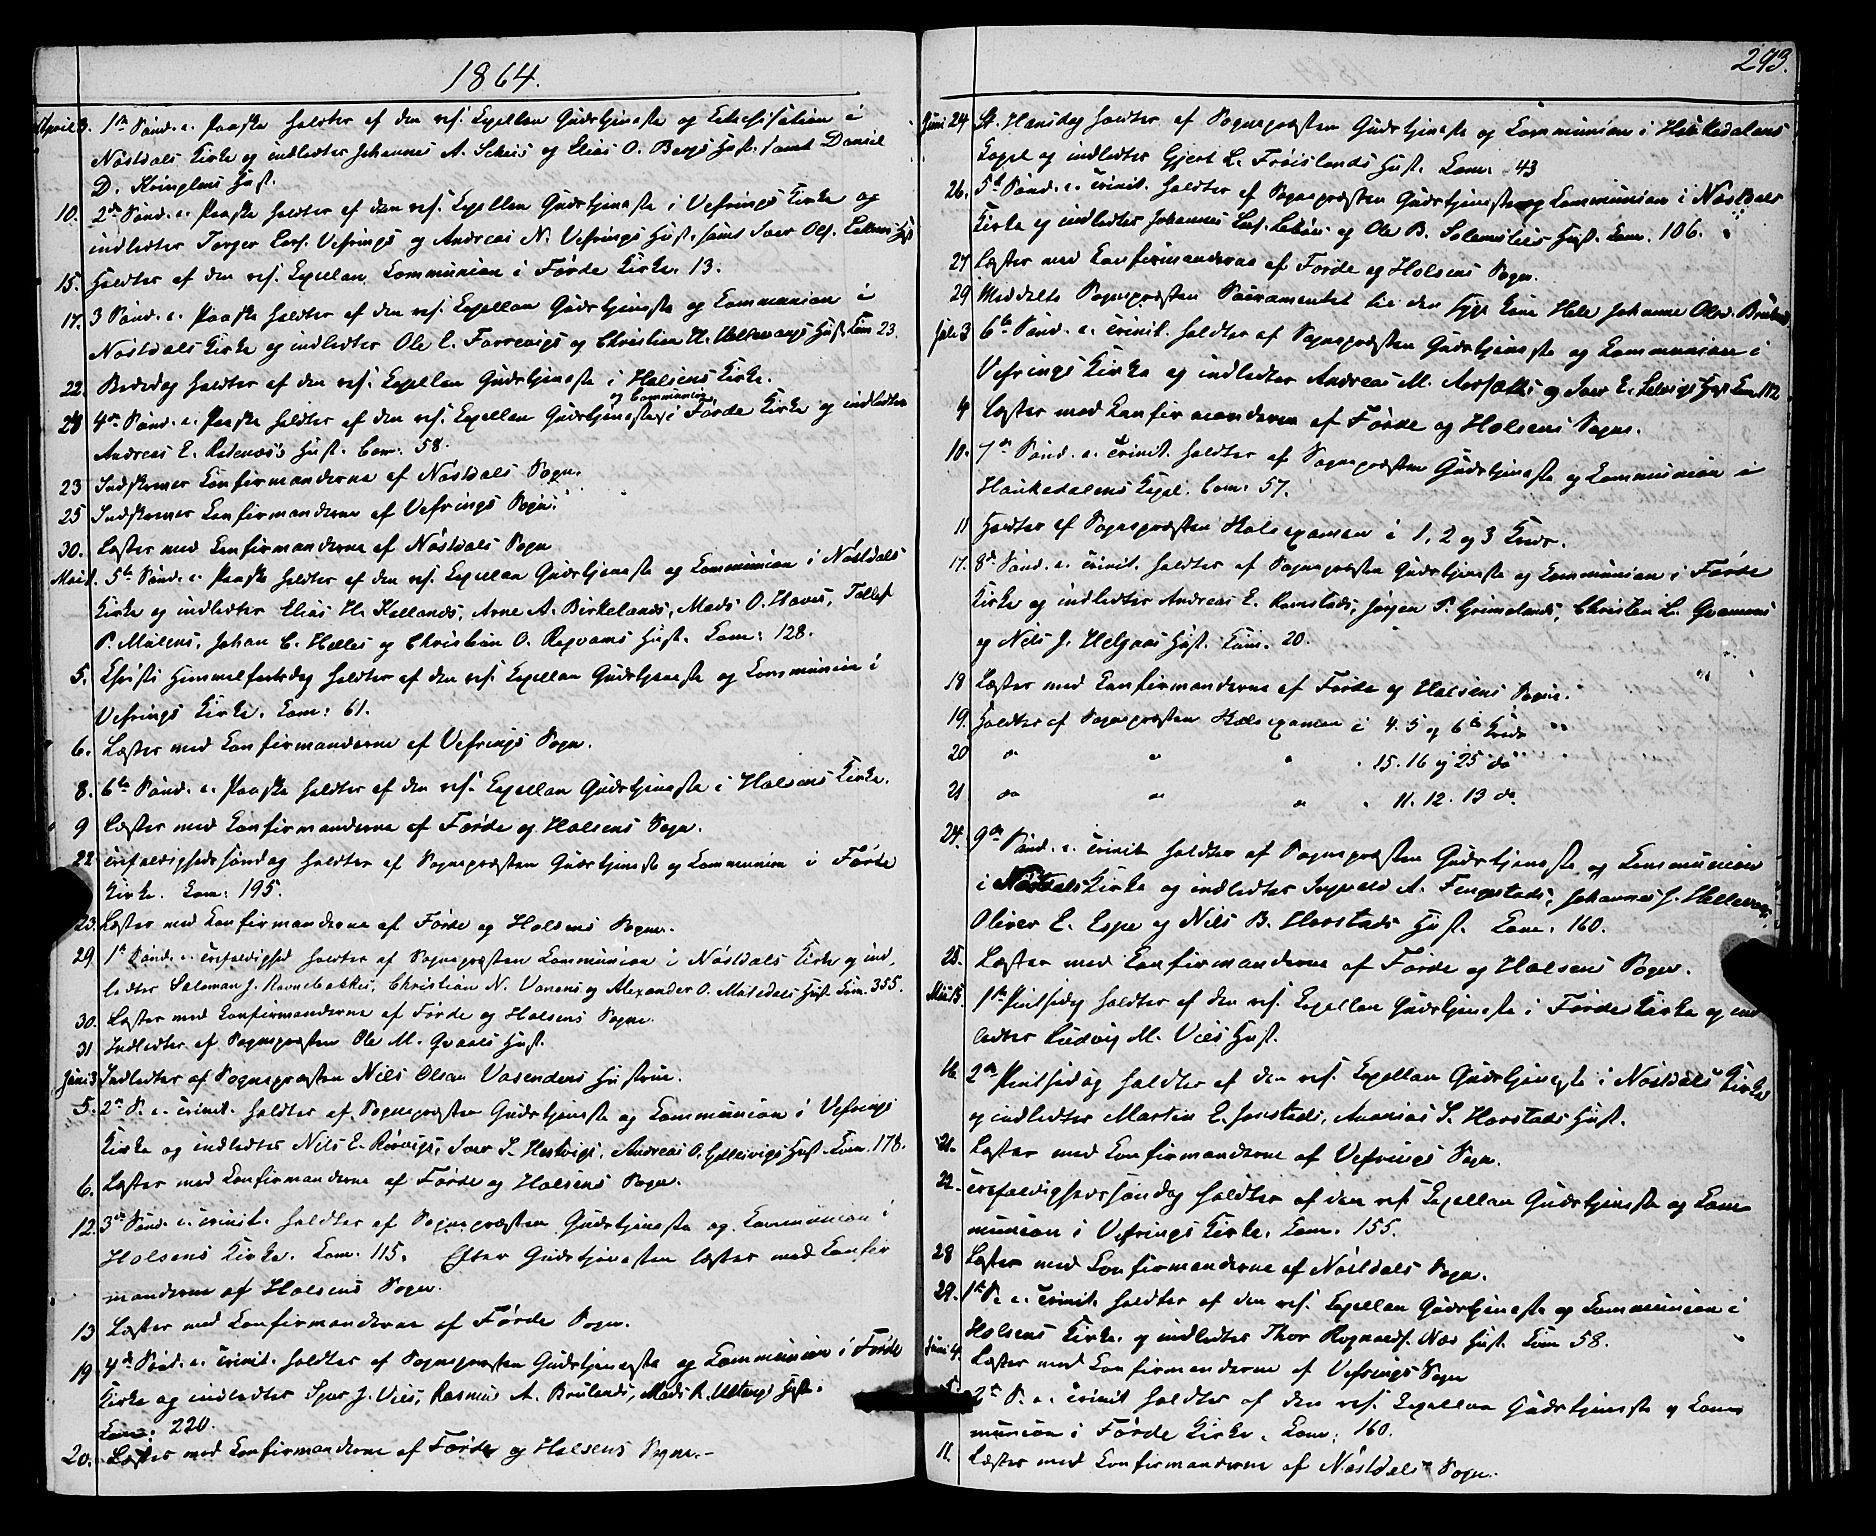 1864.
April 3. 1ste Sönd. e. Paaske holdtes af den res. Capellan Gudstjeneste og Catechisation i
Nöstdals Kirke og indledtes Johannes A. Scheis og Elias O. Bergs Hust. samt Daniel
D. Kringlens Hust.
10. 2den Sönd. e. Paaske holdtes af den res. Capellan Gudstjeneste i Vefrings Kirke og
indledtes Torger Lars. Vefrings og Andreas N. Vefrings Hust. samt Iver Ols. Hust
15. Holdtes af den res. Capellan Communion i Förde Kirke. 13.
17. 3 Sönd. e. Paaske holdtes af den res. Capellan Gudstjeneste og Communion i
Nöstdals Kirke og indledtes Ole E. Farsevigs og Christian H. Hellevangs Hust. Com 23.
22. Bededag holdtes af den res. Capellan Gudstjeneste i Holsens Kirke.
24 4de Sönd. e. Paaske holdtes af den res. Capellan Gudstjeneste og Communion i Förde Kirke og indledtes
Andreas E. Hust. Com: 58.
23 Indskrevet Confirmanderne af Nöstdals Sogn.
25 Indskrevet Confirmanderne af Vefrings Sogn.
30. Læstes med Confirmanderne af Nöstdals Sogn
Mai 1. 5te Sönd. e. Paaske holdtes af den res. Capellan Gudstjeneste og Communion i Nöstdals
Kirke og indledtes Elias H. Kellands, Arne A. Birkelands, Mads O. Haves, Tollef
P. Mulens, Johan C. Helles og Christian O. Reqvams Hust. Com: 128.
5. Christi Himmelfartsdag holdtes af den res. Capellan Gudstjeneste og Communion i
Vefrings Kirke. Com: 61.
6. Læstes med Confirmanderne af Vefrings Sogn.
8. 6te Sönd. e. Paaske holdtes af den res. Capellan Gudstjeneste i Holsens Kirke.
9 Læstes med Confirmanderne af Förde og Holsens Sogn.
22 Trefoldighedssöndag holdtes af Sognepræsten Gudstjeneste og Communion i Förde
Kirke. Com: 195.
23. Læstes med Confirmanderne af Förde og Holsens Sogne.
29 1ste Sönd. e. Trefoldighed holdtes af Sognepræsten Communion i Nöstdals Kirke og ind,
ledtes Salomon J. Ravnebakkes, Christian N. Vonens og Alexander O. Mosedals Hust. Com. 355.
30. Læstes med Confirmanderne af Förde og Holsens Sogne.
31 Indledtes af Sognepræsten Ole M. Qvaals Hust.
Juni 3 Indledtes af Sognepræsten Nils Olsen Vasendens Hustru.
5. 2den S. e. Trinit. holdtes af Sognepræsten Gudstjeneste og Communion i Vefrings
Kirke og indledtes Nils E. Rörvigs, Iver S. Hestvigs, Andreas O. Hust. Com. 178.
6. Læstes med Confirmanderne af Förde og Holsens Sogn.
12. 3die Sönd. e. Trinit. holdtes af Sognepræsten Gudstjeneste og Communion i
Holsens Kirke. Com. 115. Efter Gudstjenesten læstes med Confir
manderne af Holsens Sogn.
13 Læstes med Confirmanderne af Förde Sogn.
19 4de Sönd. e. Trinit. holdtes af Sognepræsten Gudstjeneste og Communion i Förde
Kirke og indledtes Sjur J. Vies, Rasmus A. Brulands, Mads R. Hust.
Com: 220.
20. Læstes med Confirmanderne af Förde og Holsens Sogne.
293.
Juni 24 St. Hansdag holdtes af Sognepræsten Gudstjeneste og Communion i Haukedalens
Capel og indledtes Gjert L. Fröislands Hust. Com. 43
26. 5te Sönd. e. Trinit. holdtes af Sognepræsten Gudstjeneste og Communion i Nöstdals
Kirke og indledtes Johannes Lars. og Ole B. Solemslies Hust. Com. 106.
27 Læstes med Confirmanderne af Förde og Holsens Sogn.
29 Meddelte Sognepræsten Sacramentet til den syge Johanne Olsd. Bruland
Juli 3 6te Sönd. e. Trinit. holdtes af Sognepræsten Gudstjeneste og Communion i
Vefrings Kirke og indledtes Andreas M. og Iver E. Hust Com 112
4 Læstes med Confirmanderne af Förde og Holsens Sogne.
10. 7de Sönd. e. Trinit. holdtes af Sognepræsten Gudstjeneste og Communion i
Haukedalens Capel. Com. 57.
11 Holdtes af Sognepræsten Skoleexamen i 1, 2 og 3 Kreds.
17. 8de Sönd. e. Trinit. holdtes af Sognepræsten Gudstjeneste og Communion i Förde
Kirke og indledtes Andreas E. Ramstads, Jörgen P. Grimelands, Christen L. Qvamens
og Nils J. Helgaas Hust. Com. 20.
18 Læstes med Confirmanderne af Förde og Holsens Sogne.
19. Holdtes af Sognepræsten Skoleexamen i 4. 5 og 6te Kreds
20 " " " 15. 16 og 25 do
21 " " " 11. 12. 13 do
24. 9de Sönd. e. Trinit holdtes af Sognepræsten Gudstjeneste og Communion
i Nöstdals Kirke og indledtes Ingvald A. Fengestads, Johannes J. Hellevangs,
Oliver E. Espe og Nils B. Horstads Hust. Com. 160.
25. Læstes med Confirmanderne af Förde og Holsens Sogn.
Mai 15. 1ste Pintsedag holdtes af den res. Capellan Gudstjeneste i Förde Kirke og ind
ledtes Ludvig M. Vies Hust.
16. 2den Pintsedag holdtes af den res. Capellan Gudstjeneste i Nöstdals Kirke
og indledtes Martin E. Jonstads, Ananias S. Horstads Hust.
21. Læstes med Confirmanderne af Vefrings Sogn.
22. Trefoldighedssöndag holdtes af den res. Capellan Gudstjeneste og Com
munion i Vefrings Kirke. Com. 155.
28 Læstes med Confirmanderne af Nöstdals Sogn.
29. 1ste S. e. Trinit. holdtes af den res. Capellan Gudstjeneste og Communion i
Holsens Kirke og indledtes Thor Rognalds. Næs Hust. Com 58.
Juni 4. Læstes med Confirmanderne af Vefrings Sogn
5. 2den S. e. Trinit holdtes af den res. Capellan Gudstjeneste og Com
munion i Förde Kirke. Com. 160.
11. Læstes med Confirmanderne af Nöstdals Sogn.